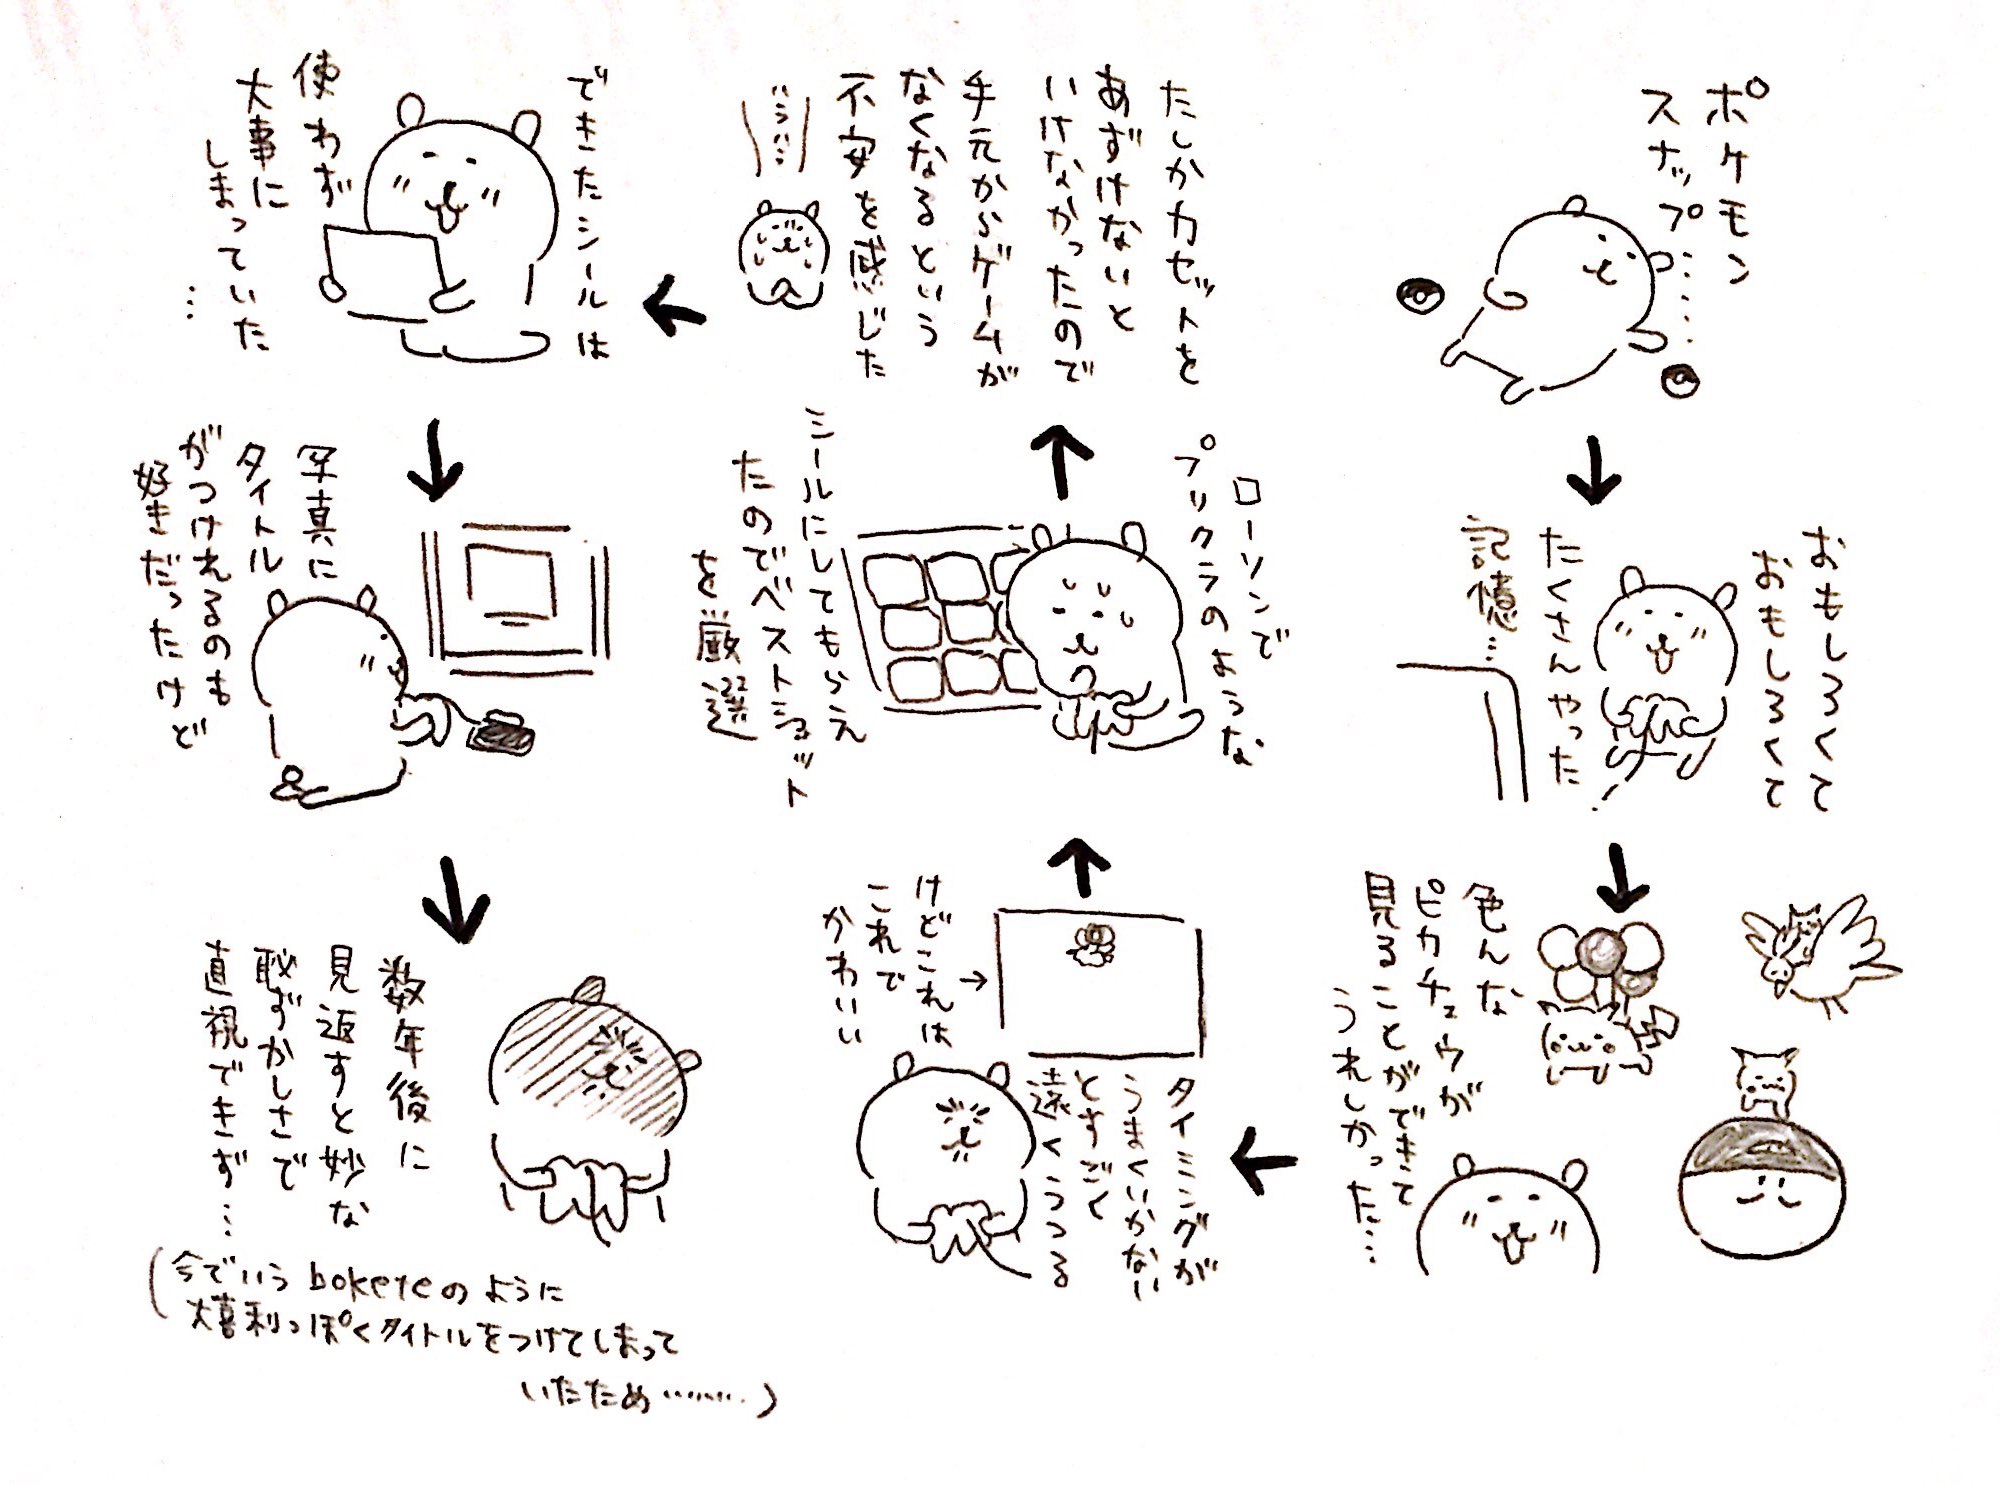 ポケモン
スナップ……
おもしろくて
おもしろくて
たくさんやった
記憶…
色んな
ピカチュウが
見ることができて
うれしかった…
タイミングが
うまくいかない
とすごく
遠くうつる
けどこれは
これで
かわいい
→
ローソンで
プリクラのような
シールにしてもらえ
たのでベストショット
を厳選
たしかカセットを
あずけないと
いけなかったので
手元からゲームが
なくなるという
不安を感じた
ハラハラ
できたシールは
使わず
大事に
しまっていた
…
写真に
タイトル
がつけれるのも
好きだったけど
数年後に
見返すと妙な
恥ずかしさで
直視できず…
(今でいうboketeのように
大喜利っぽくタイトルをつけてしまって
いたため………)